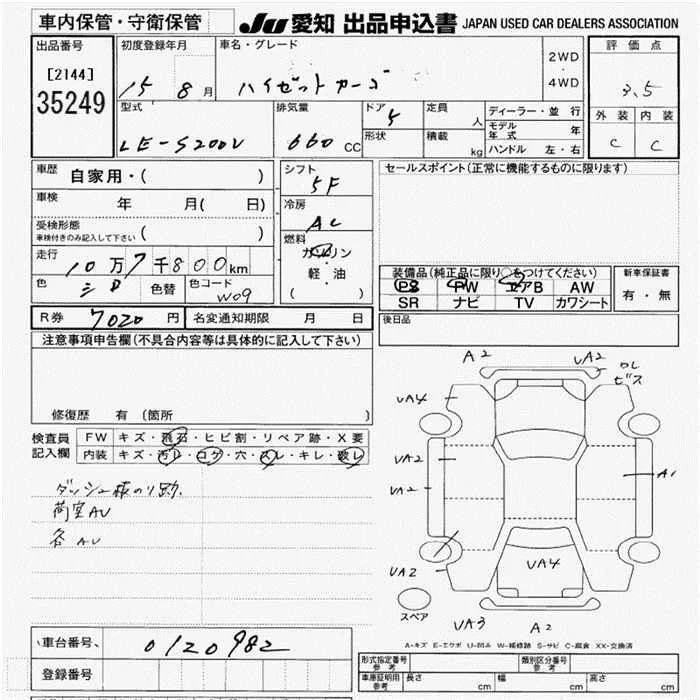 車内保管・守衛保管 JU 愛知 出品申込書 JAPAN USED CAR DEALERS ASSOCIATION
出品番号 初度登録年月 車名・グレード 評価点
[2144] 15 8月 ハイゼットカーゴ 2WD・4WD 3.5
35249
型式 排気量 ドア 定員 ディーラー・並行 外装 内装
LE-S200V 660CC 5 人 モデル年式 年 C C
形状 積載 kg ハンドル 左・右
車歴 自家用・( ) シフト 5F セールスポイント(正常に機能するものに限ります)
車検 年 月( 日) 冷房 AC
受検形態
車検付きのみ記入して下さい ( )
燃料 ガソリン
軽・油
( )
走行 10万7千800km
色 シロ 色替 色コード W09
装備品(純正品に限り○をつけてください) 新車保証書
PS PW エアB AW 有・無
SR ナビ TV カワシート
R券 7020円 名変通知期限 月 日 後日品
注意事項申告欄(不具合内容等は具体的に記入して下さい)
修復歴 有(箇所 )
検査員記入欄 FW キズ・飛石・ヒビ割・リペア跡・X要
内装 キズ・汚レ・コゲ・穴・スレ・キレ・破レ
荷室AU
各AU
A2 UA2
ビス
UA4
UA2 A1
UA2
UA2 UA4
スペア UA3 A2
A-キズ E-エクボ U-凹み W-補修跡 S-サビ C-腐食 XX-交換済
車台番号 0120982
登録番号
形式指定番号 参考 類別区分番号 参考
車庫証明用 参考 長さ cm 幅 cm 高さ cm